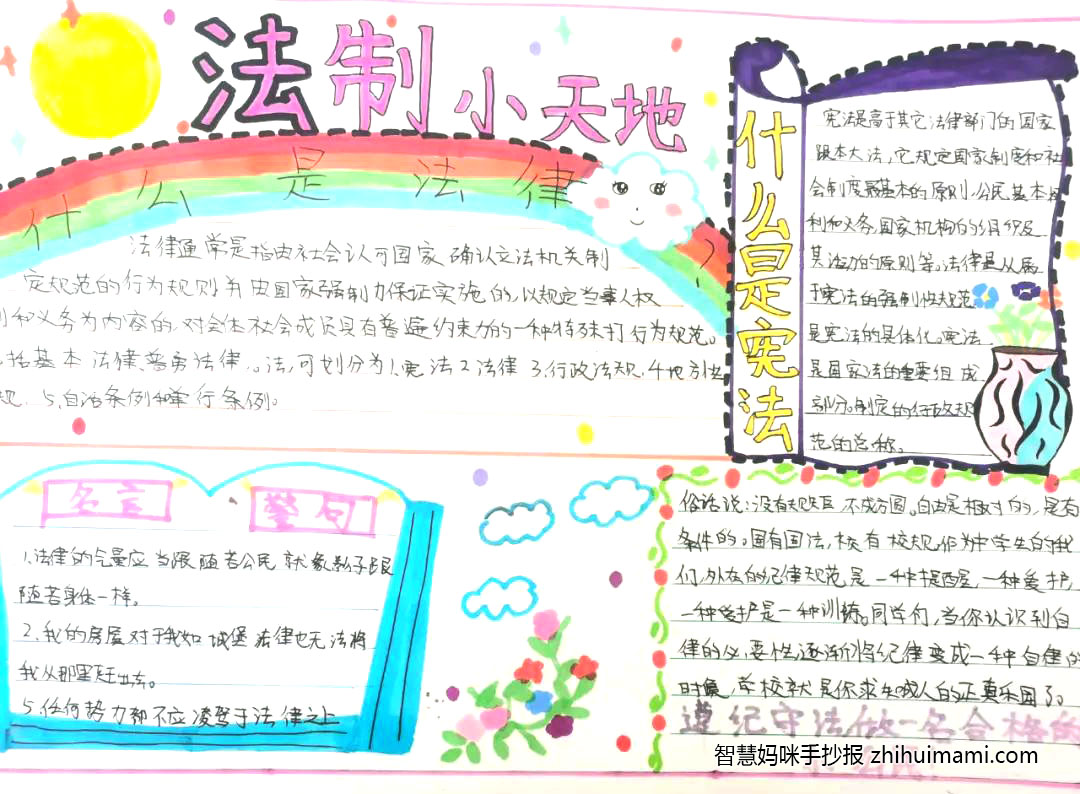 法制小天地
什么是法律?
法律通常是指由社会认可国家确认立法机关制
定规范的行为规则并由国家强制力保证实施的,以规定当事人权
利和义务为内容的,对全体社会成员具有普遍约束力的一种特殊行为规范。
括基本法律、普通法律。法,可划分为1.宪法2.法律3.行政法规,4.地方性
规、5,自治条例和单行条例。
什么是宪法
宪法是高于其它法律部门的国家
跟本大法,它规定国家制度和社
会制度最基本的原则,公民基本权
利和义务,国家机构的组织及
其活力的原则等,法律是从属
于宪法的强制性规范
是宪法的具体化。宪法
是国家法的重要组成
部分。制定的行政规
范的总称。
名言
警句
1.法律的气量应当跟随着公民就象影子跟
随着身体一样。
2.我的房屋对于我如城堡法律也无法将
我从那里赶出去。
5.任何势力都不应凌驾于法律之上
俗话说:没有规矩,不成方圆。自由是相对的,是有
条件的。国有国法,校有校规,作为中学生的我
们,外在的纪律规范是一种提醒,一种爱护,
一种爱护是一种训练。同学们,当你认识到自
律的必要性逐渐将纪律变成一种自律的
时候,学校就是你求知成人的正真乐园了。
遵纪守法做一名合格的
智慧妈咪手抄报 zhihuimami.com